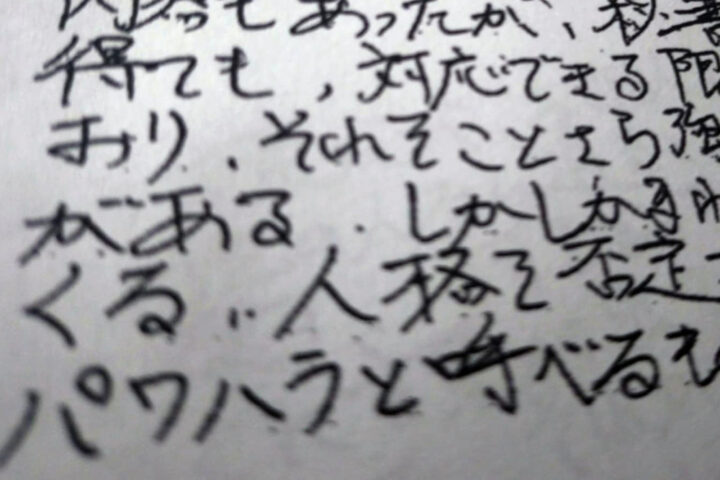 内容もあったが、秘書
得ても、対応できる限
おり、それをことさら強
がある。しかし
くる。人格を否定
パワハラと呼べる